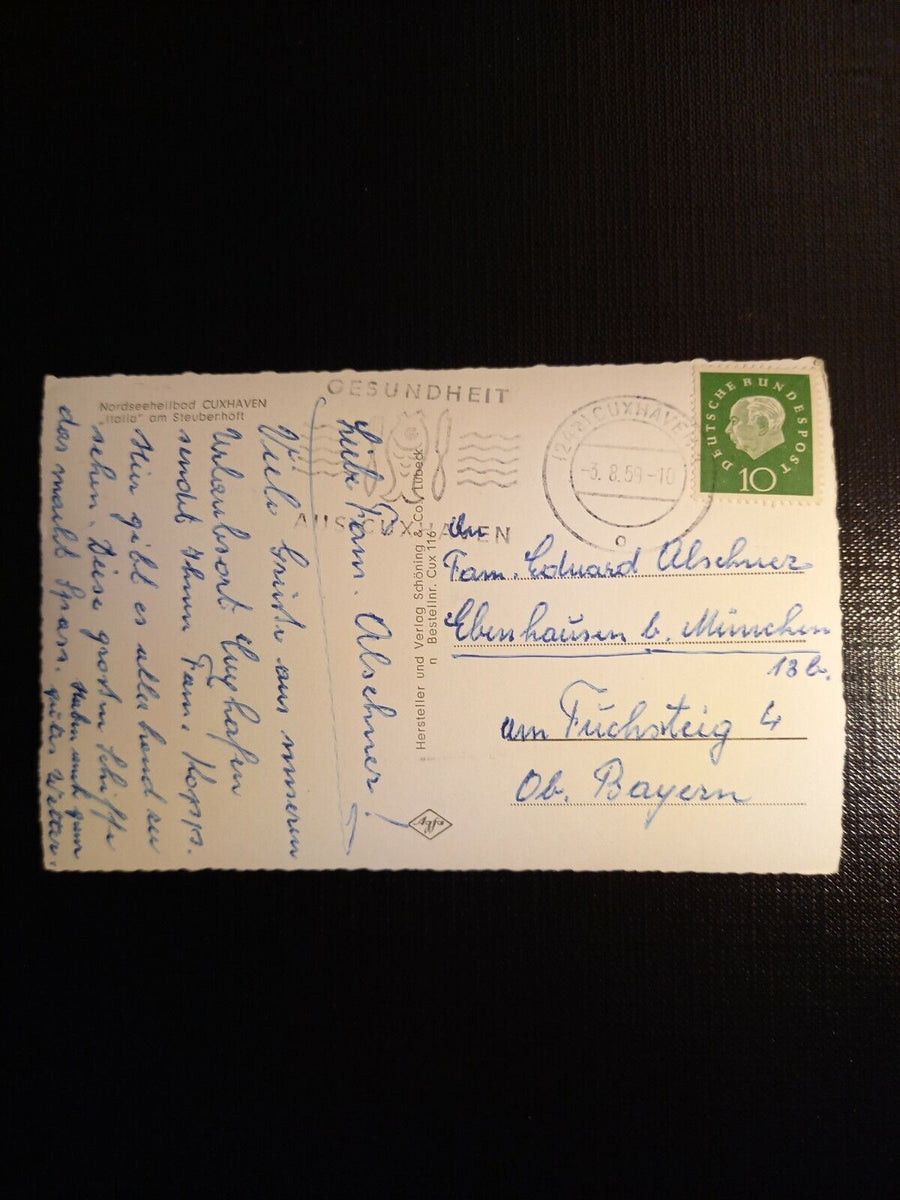 Nordseeheilbad CUXHAVEN
„Italia" am Steubenhöft
GESUNDHEIT
AUS CUXHAVEN
(24a) CUXHAVEN
-3.8.59-10
DEUTSCHE BUNDESPOST
10
Hersteller und Verlag Schöning & Co., Lübeck
Bestellnr. Cux 116
Liebe Fam. Alschner!
Viele Grüße aus unseren
Urlaubsort Cuxhafen
sendet Ihnen Fam. Kopps.
Hier gibt es allerhand zu
sehen. Diese großen Schiffe
das macht Spass. Haben auch ganz
gutes Wetter.
An
Fam. Eduard Alschner
Ebenhausen b. München
13b.
am Fuchsteig 4
Ob. Bayern